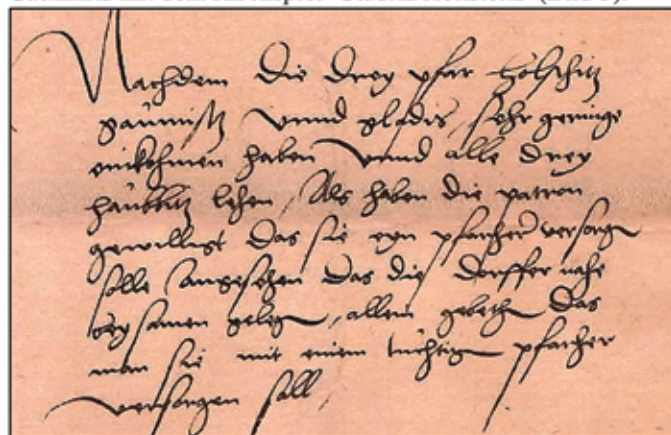 mit dem
Nachdem die drey pfar
vnnd gladis, sehr geringe
einkohmen haben vnnd alle drey
lehen, Als haben die patron
gewilligt das sie eyn pfarher versorgn
solle angesehen das die dorffer nahe
bey samen gelegn, allein gebethn das
man sie mit einem tüchtign pfarher
versorgen soll